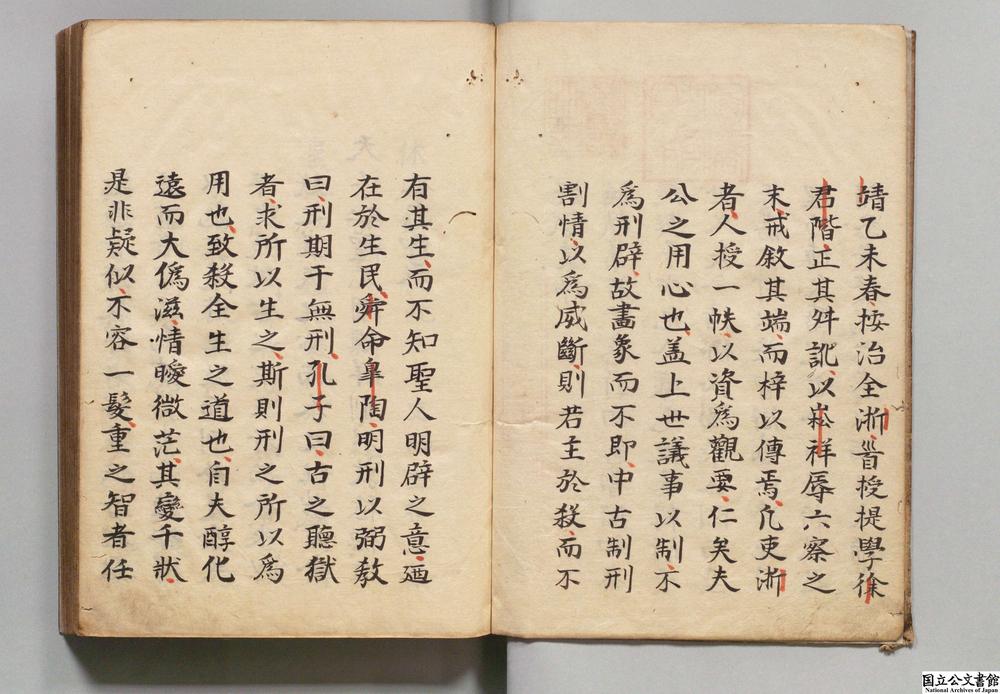 靖乙未春按治全浙首授提學徐
君階正其舛訛以崧祥辱六察之
末戒敘其端而梓以傳焉凡吏浙
者人授一帙以資爲觀要仁矣夫
公之用心也盖上世議事以制不
爲刑辟故畫象而不即中古制刑
割情以爲威斷則若主於殺而不
有其生而不知聖人明辟之意廼
在於生民舜命皐陶明刑以弼敎
曰刑期于無刑孔子曰古之聽獄
者求所以生之斯則刑之所以爲
用也致殺全生之道也自夫醇化
遠而大僞滋情曖微茫其變千狀
是非疑似不容一髮重之智者任
国立公文書館
National Archives of Japan